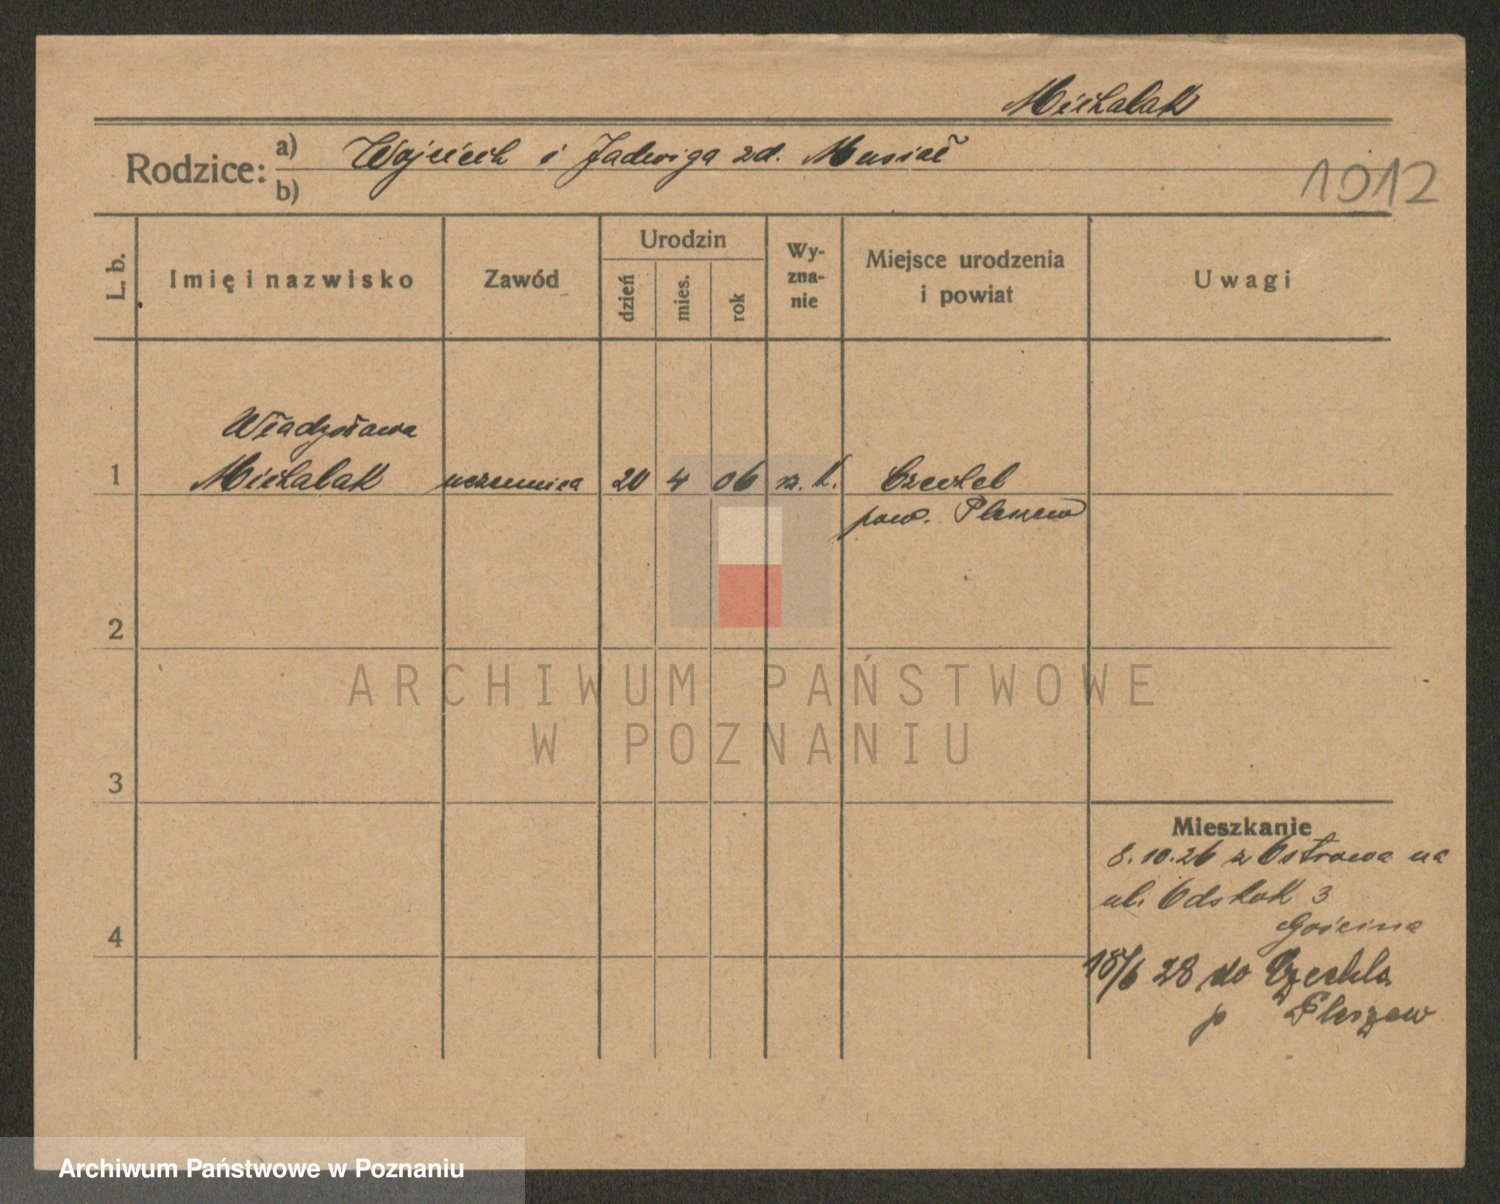 Michalak
Rodzice: a) Wojciech i Jadwiga zd. Musiał
b)
1912
L. b.
Imię i nazwisko
Zawód
Urodzin
dzień
mies.
rok
Wy-
zna-
nie
Miejsce urodzenia
i powiat
Uwagi
Władysława
1 Michalak uczennica 20 4 06 rz. k. Czechel
pow. Pleszew
2
3
4
ARCHIWUM PAŃSTWOWE
W POZNANIU
Mieszkanie
8.10.26 z Ostrowa na
ul. Odskok 3
18/6 28 do Czechla
p Pleszew
Archiwum Państwowe w Poznaniu